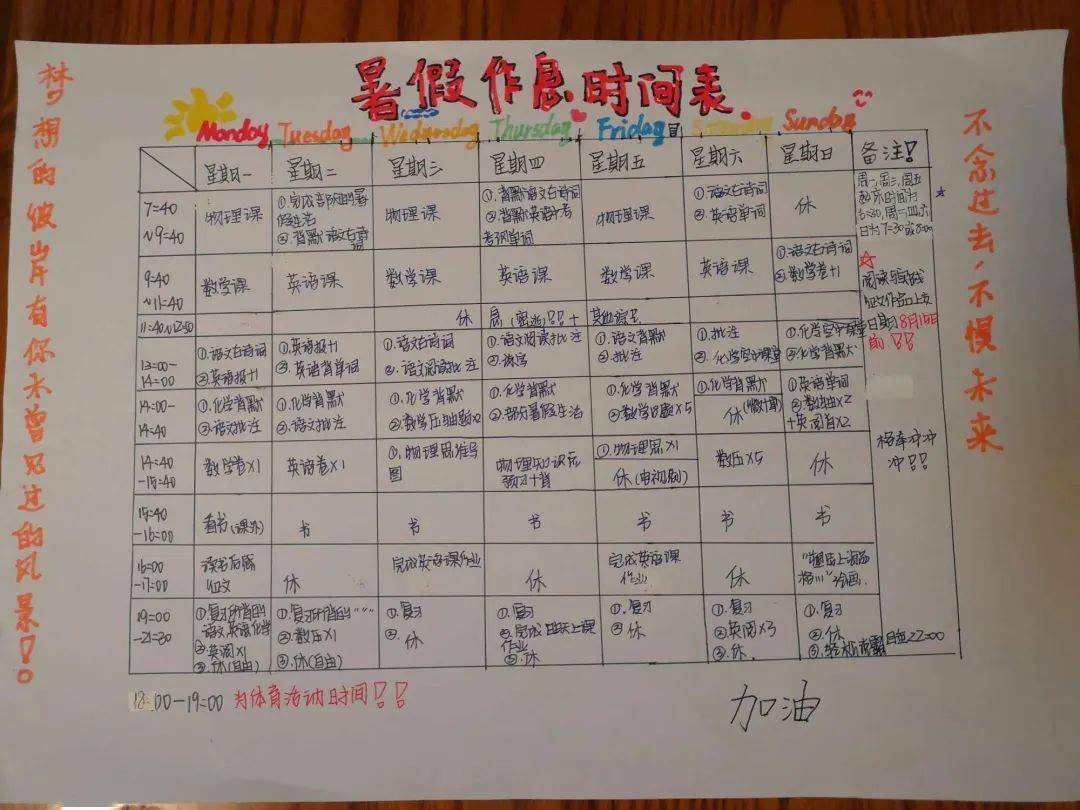 暑假作息时间表
梦想的彼岸有你未曾见过的风景!。
不念过去,不惧未来
Monday Tuesday Wednesday Thursday Friday Saturday Sunday
星期一 星期二 星期三 星期四 星期五 星期六 星期日 备注!
7:40
~9:40
物理课
生活
②.背默语文古诗词
物理课
①.背默语文古诗词
②.背默英语中考
考纲单词
物理课
①.语文古诗词
②.英语单词
休
周一,周三,周五
起床时间为
日为7:30或8:00
9:40
~11:40
数学课
英语课
数学课
英语课
数学课
英语课
①语文古诗词
②数学卷+1
11:40~12:50
休
息
13:00-
14:00
①.语文古诗词
②英语报+1
①.英语报+1
②.英语背单词
①.语文古诗词
②.语文阅读批注
①.语文阅读批注
②.练字
①.语文背默
②.批注
①.批注
②.化学空中课堂
①.化学空中课堂
②化学背默
日期:8月15日
前!!
14:00-
14:40
①.化学背默
②语文批注
①.化学背默
②.语文批注
①.化学背默
②数学压轴题×2
①.化学背默
②.部分暑假生活
①化学背默
②数学口题×5
①.化学背默
休
①.英语单词
②数轴×2
+英阅首×2
14:40
-15:40
数学卷×1
英语卷×1
①.物理思维导
图
物理知识点
预习+背
①.物理思×1
休(电视剧)
数压×5
休
杨奉冲冲
冲!!
15:40
-16:00
看书(课外)
书
书
书
书
书
书
16:00
-17:00
读书后感
征文
休
完成英语课作业
休
完成英语课
作业
休
绘画.
19:00
-21:30
①复习所背的
语文,英语化学
②英阅×1
③.休(自由)
①.复习所背的"""
②.数压×1
③.休(自由)
①.复习
②.休
①.复习
②.完成四天上课
作业
③.休
①.复习
②休
①.复习
②英阅×3
③.休.
①.复习
②.休
22:00
18:00-19:00 为体育活动时间!!
加油